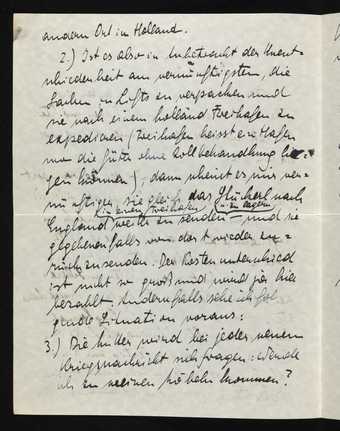 andern Ort in Holland.
2.) Ist es also in Anbetracht der Unent-
schiedenheit am vernünftigsten, die
Sachen in Lifts zu verpacken und
sie nach einem holländ Freihafen zu
expedieren (Freihafen heisst ein Hafen
wo die Güter ohne Zollbehandlung lie-
gen können), dann scheint es mir ver-
nünftiger sie gleich das nach
in einen Freihafen zu lagern
England weiter zu senden und sie
gegebenenfalls von dort wieder zu-
rückzusenden. Der Kostenunterschied
ist nicht so groß und wird ja hier
bezahlt. Andernfalls sehe ich fol
gende Situation voraus:
3.) Die Mutter wird bei jeder neuen
Kriegsnachricht sich fragen: Werde
ich zu meinen Möbeln kommen?